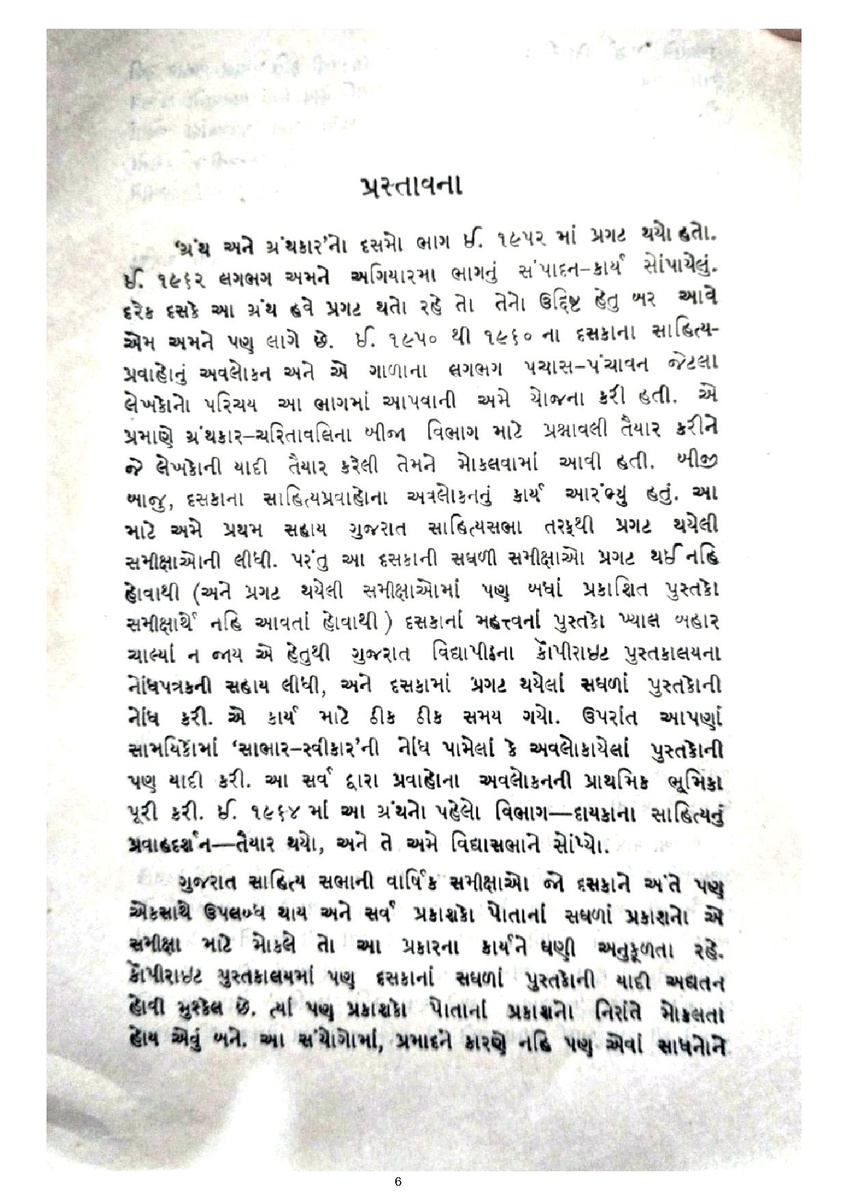 પ્રસ્તાવના
'ગ્રંથ અને ગ્રંથકાર'નો દસમો ભાગ ઈ. ૧૯૫૨ માં પ્રગટ થયો હતો.
ઈ. ૧૯૬૨ લગભગ અમને અગિયારમા ભાગનું સંપાદન-કાર્ય સોંપાયેલું.
દરેક દસકે આ ગ્રંથ હવે પ્રગટ થતો રહે તો તેનો ઉદ્દિષ્ટ હેતુ બર આવે
એમ અમને પણ લાગે છે. ઈ. ૧૯૫૦ થી ૧૯૬૦ ના દસકાના સાહિત્ય-
પ્રવાહોનું અવલોકન અને એ ગાળાના લગભગ પચાસ-પંચાવન જેટલા
લેખકોનો પરિચય આ ભાગમાં આપવાની અમે યોજના કરી હતી. એ
પ્રમાણે ગ્રંથકાર-ચરિતાવલિના બીજા વિભાગ માટે પ્રશ્નાવલી તૈયાર કરીને
જે લેખકોની યાદી તૈયાર કરેલી તેમને મોકલવામાં આવી હતી. બીજી
બાજુ, દસકાના સાહિત્યપ્રવાહોના અવલોકનનું કાર્ય આરંભ્યું હતું. આ
માટે અમે પ્રથમ સહાય ગુજરાત સાહિત્યસભા તરફથી પ્રગટ થયેલી
સમીક્ષાઓની લીધી. પરંતુ આ દસકાની સઘળી સમીક્ષાઓ પ્રગટ થઈ નહિ
હોવાથી (અને પ્રગટ થયેલી સમીક્ષાઓમાં પણ બધાં પ્રકાશિત પુસ્તકો
સમીક્ષાર્થે નહિ આવતાં હોવાથી) દસકાનાં મહત્ત્વનાં પુસ્તકો ખ્યાલ બહાર
ચાલ્યાં ન જાય એ હેતુથી ગુજરાત વિદ્યાપીઠના કૉપીરાઇટ પુસ્તકાલયના
નોંધપત્રકની સહાય લીધી, અને દસકામાં પ્રગટ થયેલાં સઘળાં પુસ્તકોની
નોંધ કરી. એ કાર્ય માટે ઠીક ઠીક સમય ગયો. ઉપરાંત આપણાં
સામયિકોમાં 'સાભાર-સ્વીકાર'ની નોંધ પામેલાં કે અવલોકાયેલાં પુસ્તકોની
પણ યાદી કરી. આ સર્વ દ્વારા પ્રવાહોના અવલોકનની પ્રાથમિક ભૂમિકા
પૂરી કરી. ઈ. ૧૯૬૪ માં આ ગ્રંથનો પહેલો વિભાગ—દાયકાના સાહિત્યનું
પ્રવાહદર્શન—તૈયાર થયો, અને તે અમે વિદ્યાસભાને સોંપ્યો.
ગુજરાત સાહિત્ય સભાની વાર્ષિક સમીક્ષાઓ જો દસકાને અંતે પણ
એકસાથે ઉપલબ્ધ થાય અને સર્વ પ્રકાશકો પોતાનાં સઘળાં પ્રકાશનો એ
સમીક્ષા માટે મોકલે તો આ પ્રકારના કાર્યને ઘણી અનુકૂળતા રહે.
કૉપીરાઇટ પુસ્તકાલયમાં પણ દસકાનાં સઘળાં પુસ્તકોની યાદી અદ્યતન
હોવી મુશ્કેલ છે. ત્યાં પણ પ્રકાશકો પોતાનાં પ્રકાશનો નિરાંતે મોકલતા
હોય એવું બને. આ સંયોગોમાં, પ્રમાદને કારણે નહિ પણ એવાં સાધનોને
6